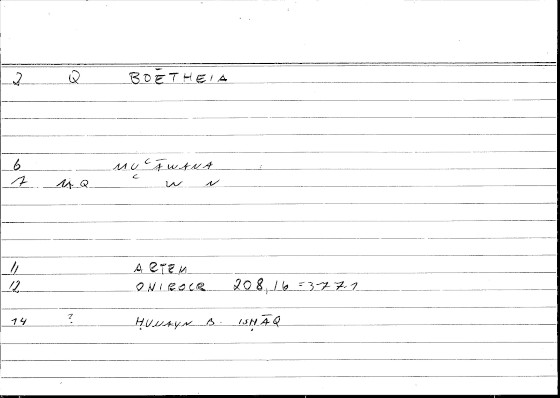 2 Q BOĒTHEIA
6 MUʿĀWANA
7 MQ ʿ W N
11 ARTEM
12 ONIROCR 208,16 = 377 1
14 ? ḤUNAYN B. ISḤĀQ